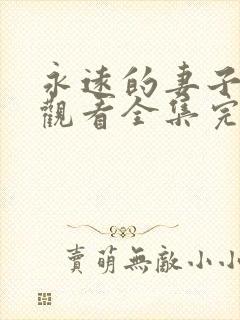 永遠的妻子
觀看全集完
賣萌無敵小小